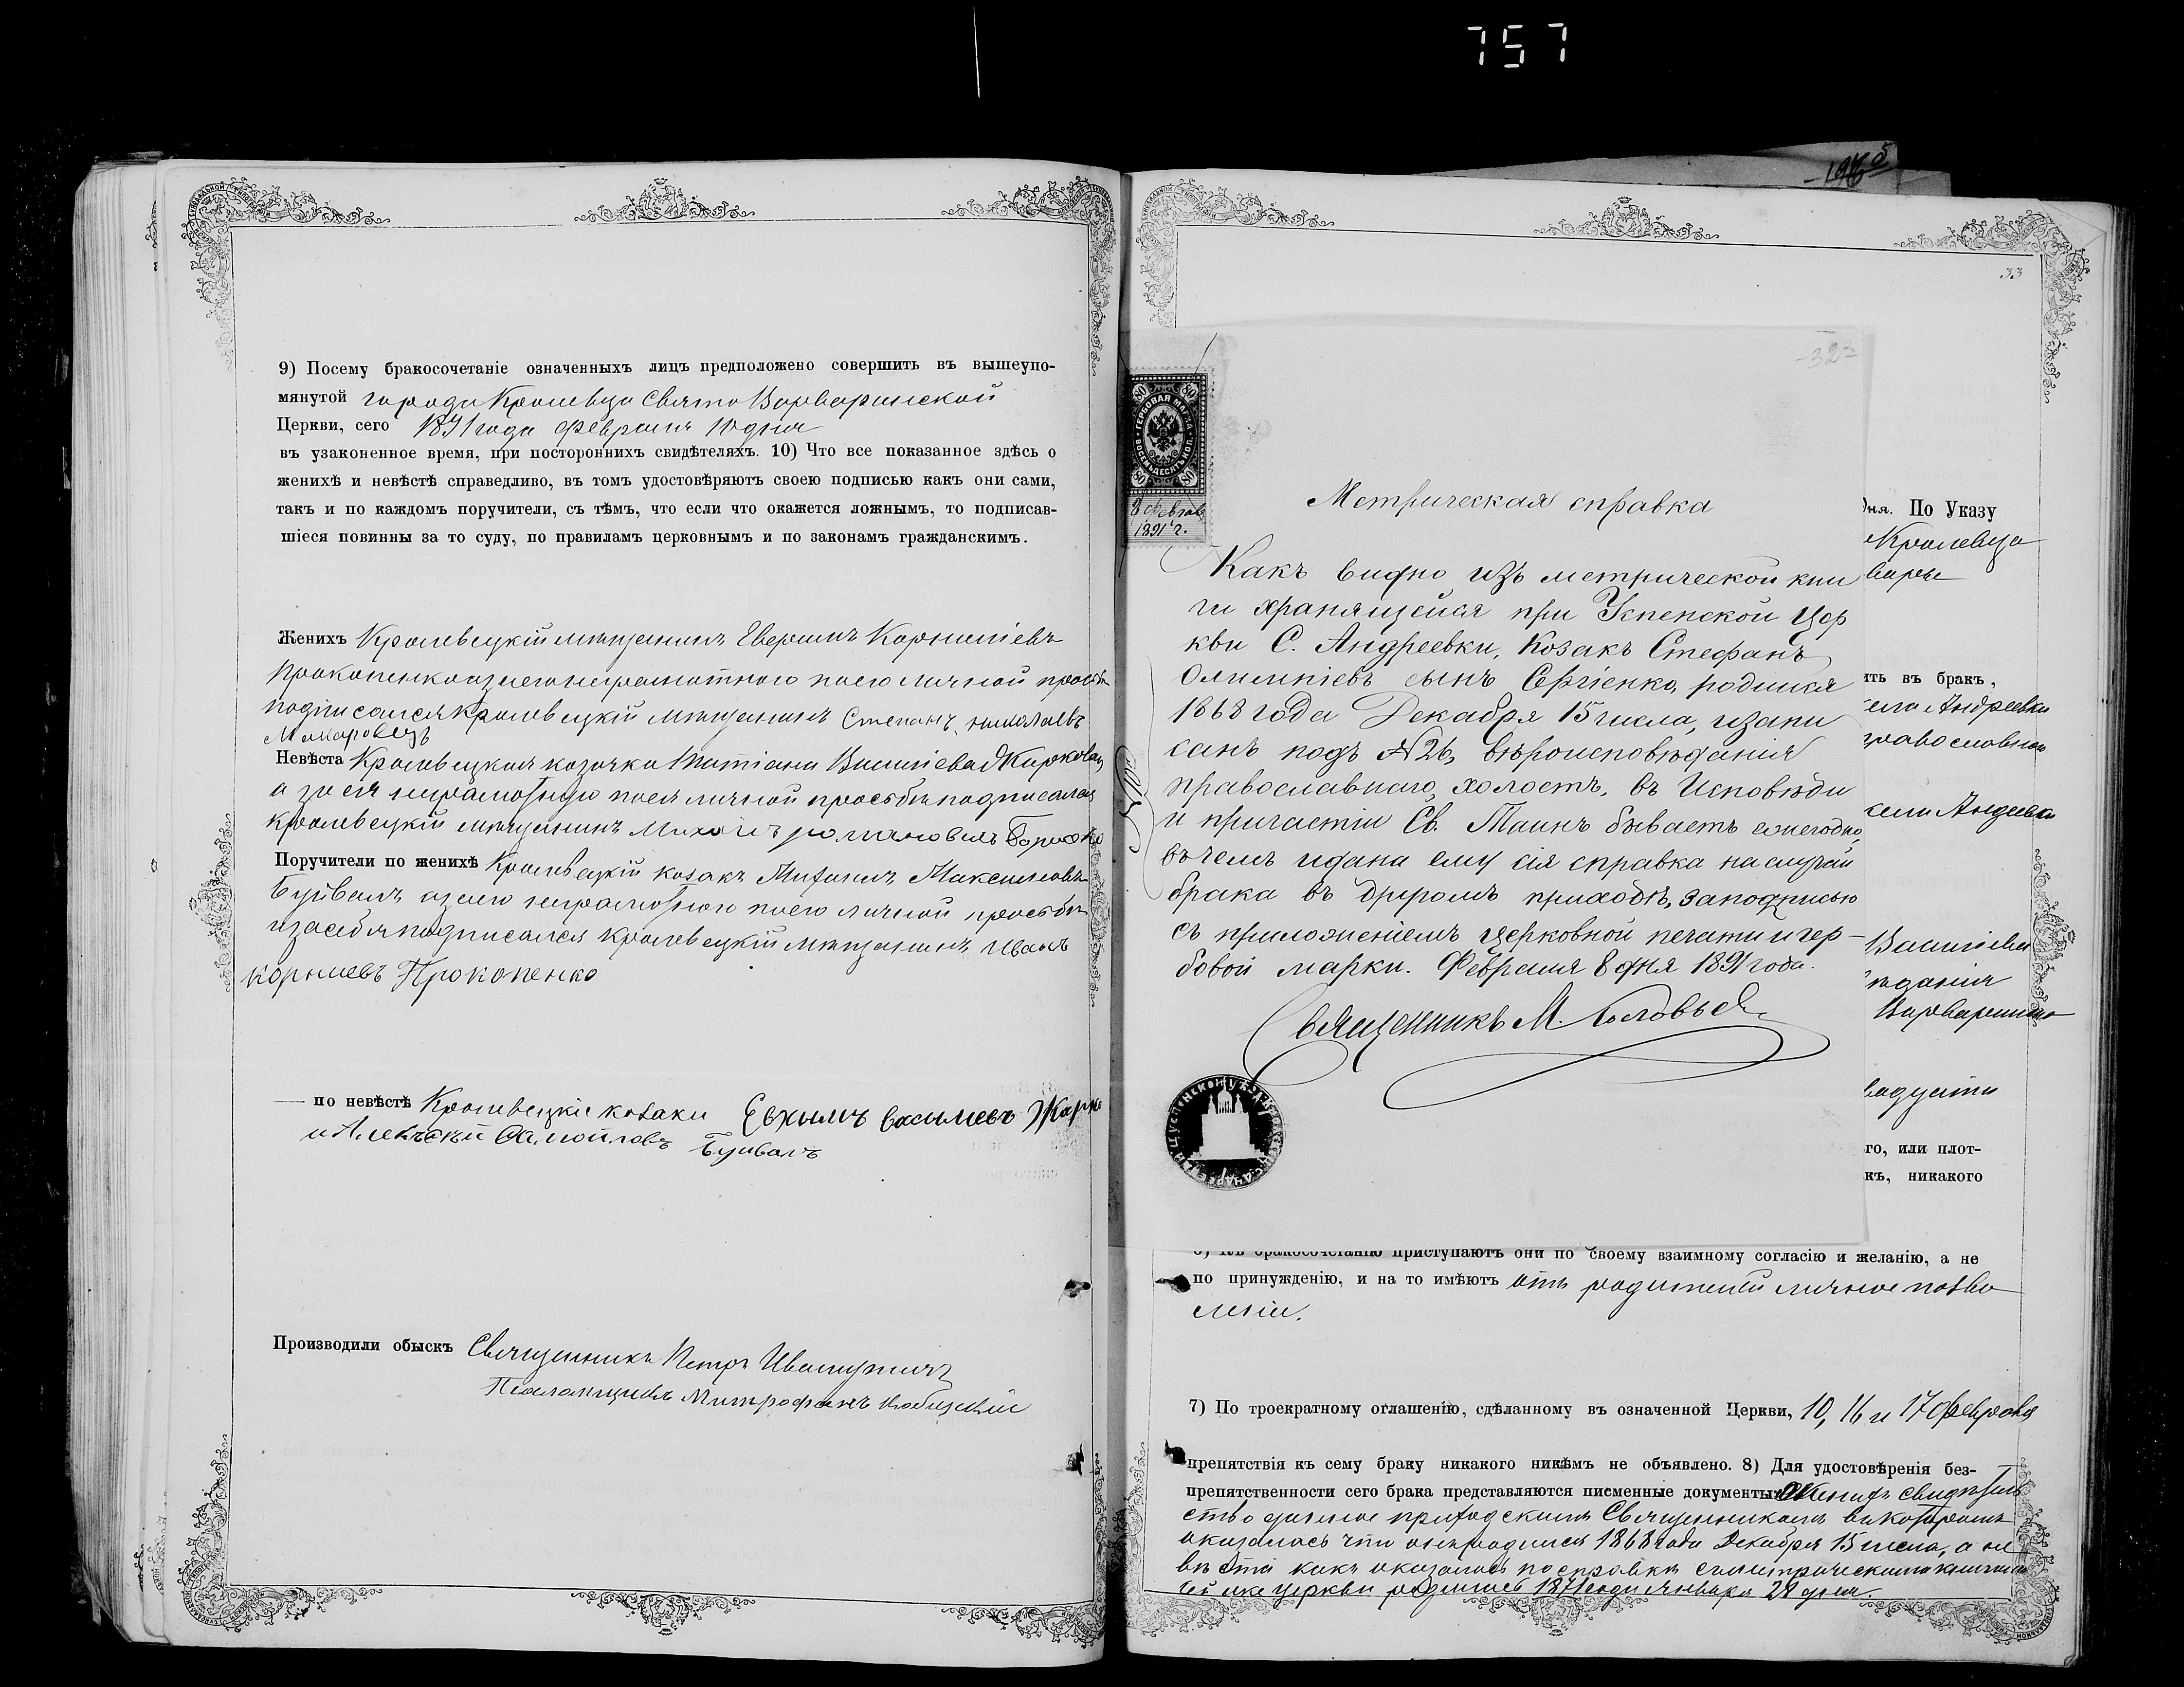 757
9) Посему бракосочетаніе означенныхъ лицъ предположено совершить въ вышеупо-
мянутой города Кролевца Свято Варваринской
Церкви, сего 1891 года февраля 10 дня
въ узаконенное время, при постороннихъ свидѣтеляхъ. 10) Что все показанное здѣсь о
женихѣ и невѣстѣ справедливо, въ томъ удостовѣряютъ своею подписью какъ они сами,
такъ и по каждомъ поручители, съ тѣмъ, что если что окажется ложнымъ, то подписав-
шіеся повинны за то суду, по правиламъ церковнымъ и по законамъ гражданскимъ.
Женихъ Кролевецкій мѣщанинъ Корниліевъ
Прокопенко а за него неграмотного по его личной прозьбѣ
подписался Кролевецкій мѣщанинъ Степанъ
Макаровецъ
Невѣста Кролевецкая козачка Татіана Василіева Жаркова
а за ея неграмотную по ея личной просьбѣ подписался
кролевецкій мѣщанинъ
Поручители по женихѣ Кролевецкій козакъ Максимовъ
Буйвалъ а за его неграмотного по его личной просьбѣ
и за себя подписался кролевецкій мѣщанинъ Иванъ
корнѣевъ Прокопенко
— по невѣстѣ Кролевецкіе козаки Евхымъ васылевъ
и Алексѣй Самойловъ Буйвалъ
Производили обыскъ Священникъ Петръ
Псаломщикъ Митрофанъ
33
ГЕРБОВАЯ МАРКА
ВОСЕМЬДЕСЯТЪ КОП.
80 80
80 80
8 февраля
1891 г.
Метрическая справка
Какъ видно изъ метрической кни
ги хранящейся при Успенской Цер
кви С. Андреевки, Козакъ Стефанъ
Олимпіевъ сынъ Сергіенко, родился
1868 года Декабря 15 числа, и запи
санъ подъ №26, вѣроисповѣданія
православнаго, холостъ, въ Исповѣди
и причастіи Св. Таинъ бываетъ ежегодно,
въ чемъ и дана ему сія справка на случай
брака въ другомъ приходѣ, за подписью
съ приложеніемъ церковной печати и гер-
бовой марки. Февраля 8 дня 1891 года.
Священникъ М.
дня. По Указу
Кролевца
ить въ бракъ,
села Андреевки
православнаго
села Андреевки
Василіева
го, или плот-
къ, никакого
бракосочетанію приступаютъ они по своему взаимному согласію и желанію, а не
по принужденію, и на то имѣютъ отъ родителей личное позво
леніе.
7) По троекратному оглашенію, сдѣланному въ означенной Церкви, 10, 16 и 17 февраля
препятствія къ сему браку никакого никѣмъ не объявлено. 8) Для удостовѣренія без-
препятственности сего брака представляются писменные документы: Женихъ свидѣтель
ство данное приходскимъ Священникомъ въ которомъ
оказалось что онъ родился 1868 года Декабря 15 числа, а не
вѣста какъ оказалось по справкѣ съ метрическими книгами
сей же церкви родилась 1871 года Января 28 дня.